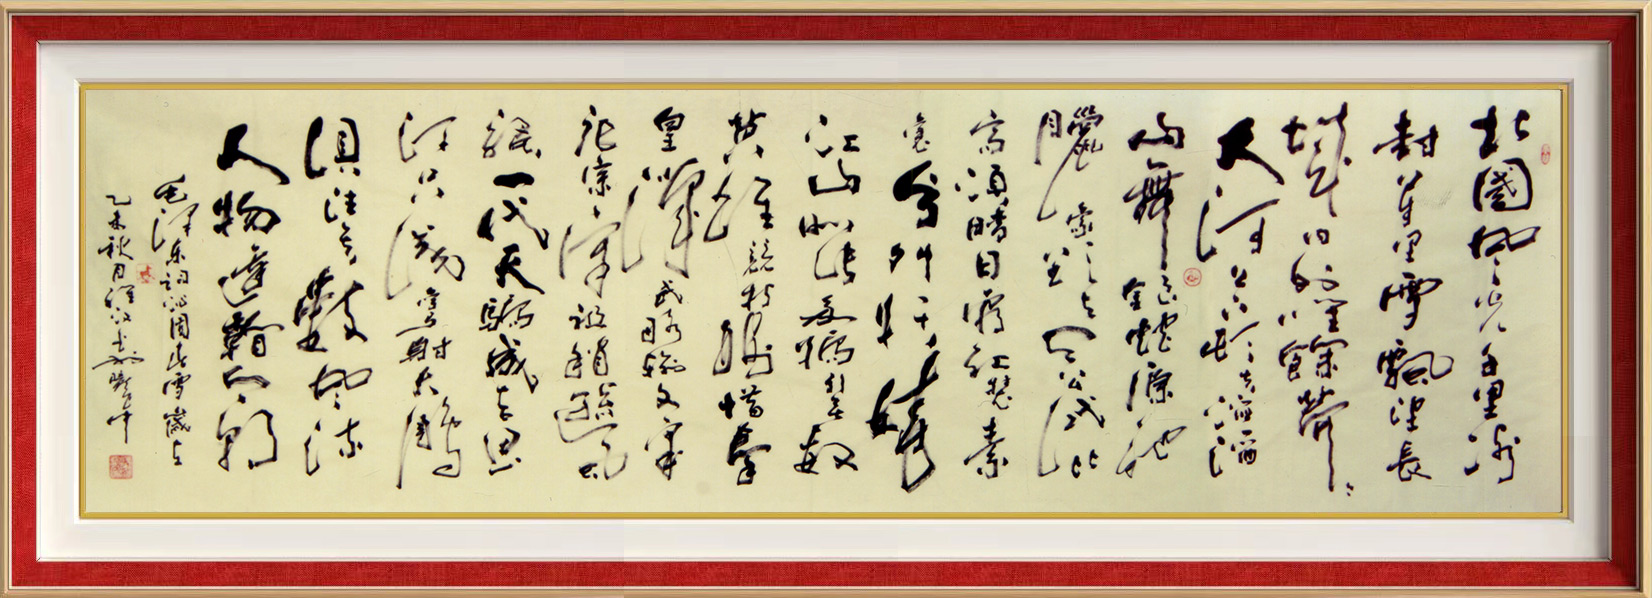 北國風光千里冰
封萬里雪飄望長
城內外惟餘莽莽
大河上下頓失滔滔
山舞銀蛇原馳
臘象欲與天公試比
高須晴日看紅裝素
裹分外妖嬈
江山如此多嬌引無數
英雄競折腰惜秦
皇漢武略輸文采
唐宗宋祖稍遜風
騷一代天驕成吉思
汗只識彎弓射大雕
俱往矣數風流
人物還看今朝
毛澤東詞沁園春雪歲在
乙未秋月